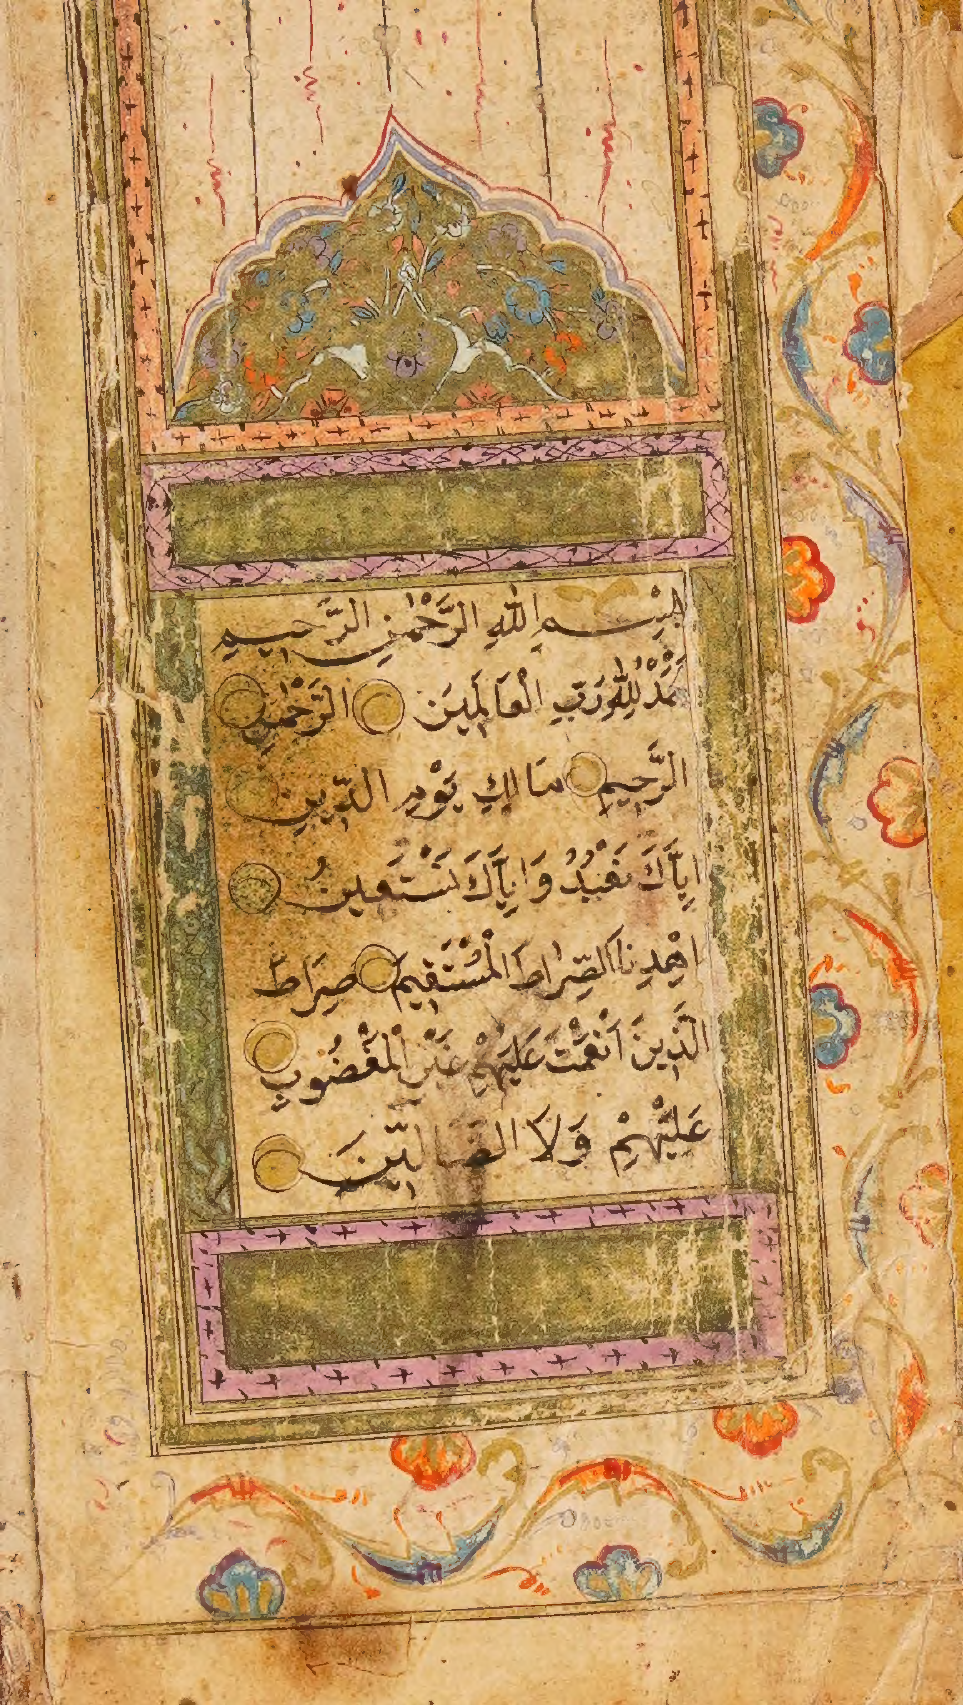 بِسْمِ اللهِ الرَّحْمٰنِ الرَّحِيمِ
مْدُ لِلّٰهِ رَبِّ الْعَالَمِينَ الرَّحْمٰنِ
الرَّحِيمِ مَالِكِ يَوْمِ الدِّينِ
اِيَّاكَ نَعْبُدُ وَاِيَّاكَ نَسْتَعِينُ
اهْدِنَا الصِّرَاطَ الْمُسْتَقِيمَ صِرَاطَ
الَّذِينَ اَنْعَمْتَ عَلَيْهِمْ غَيْرِ الْمَغْضُوبِ
عَلَيْهِمْ وَلَا الضَّالِّينَ